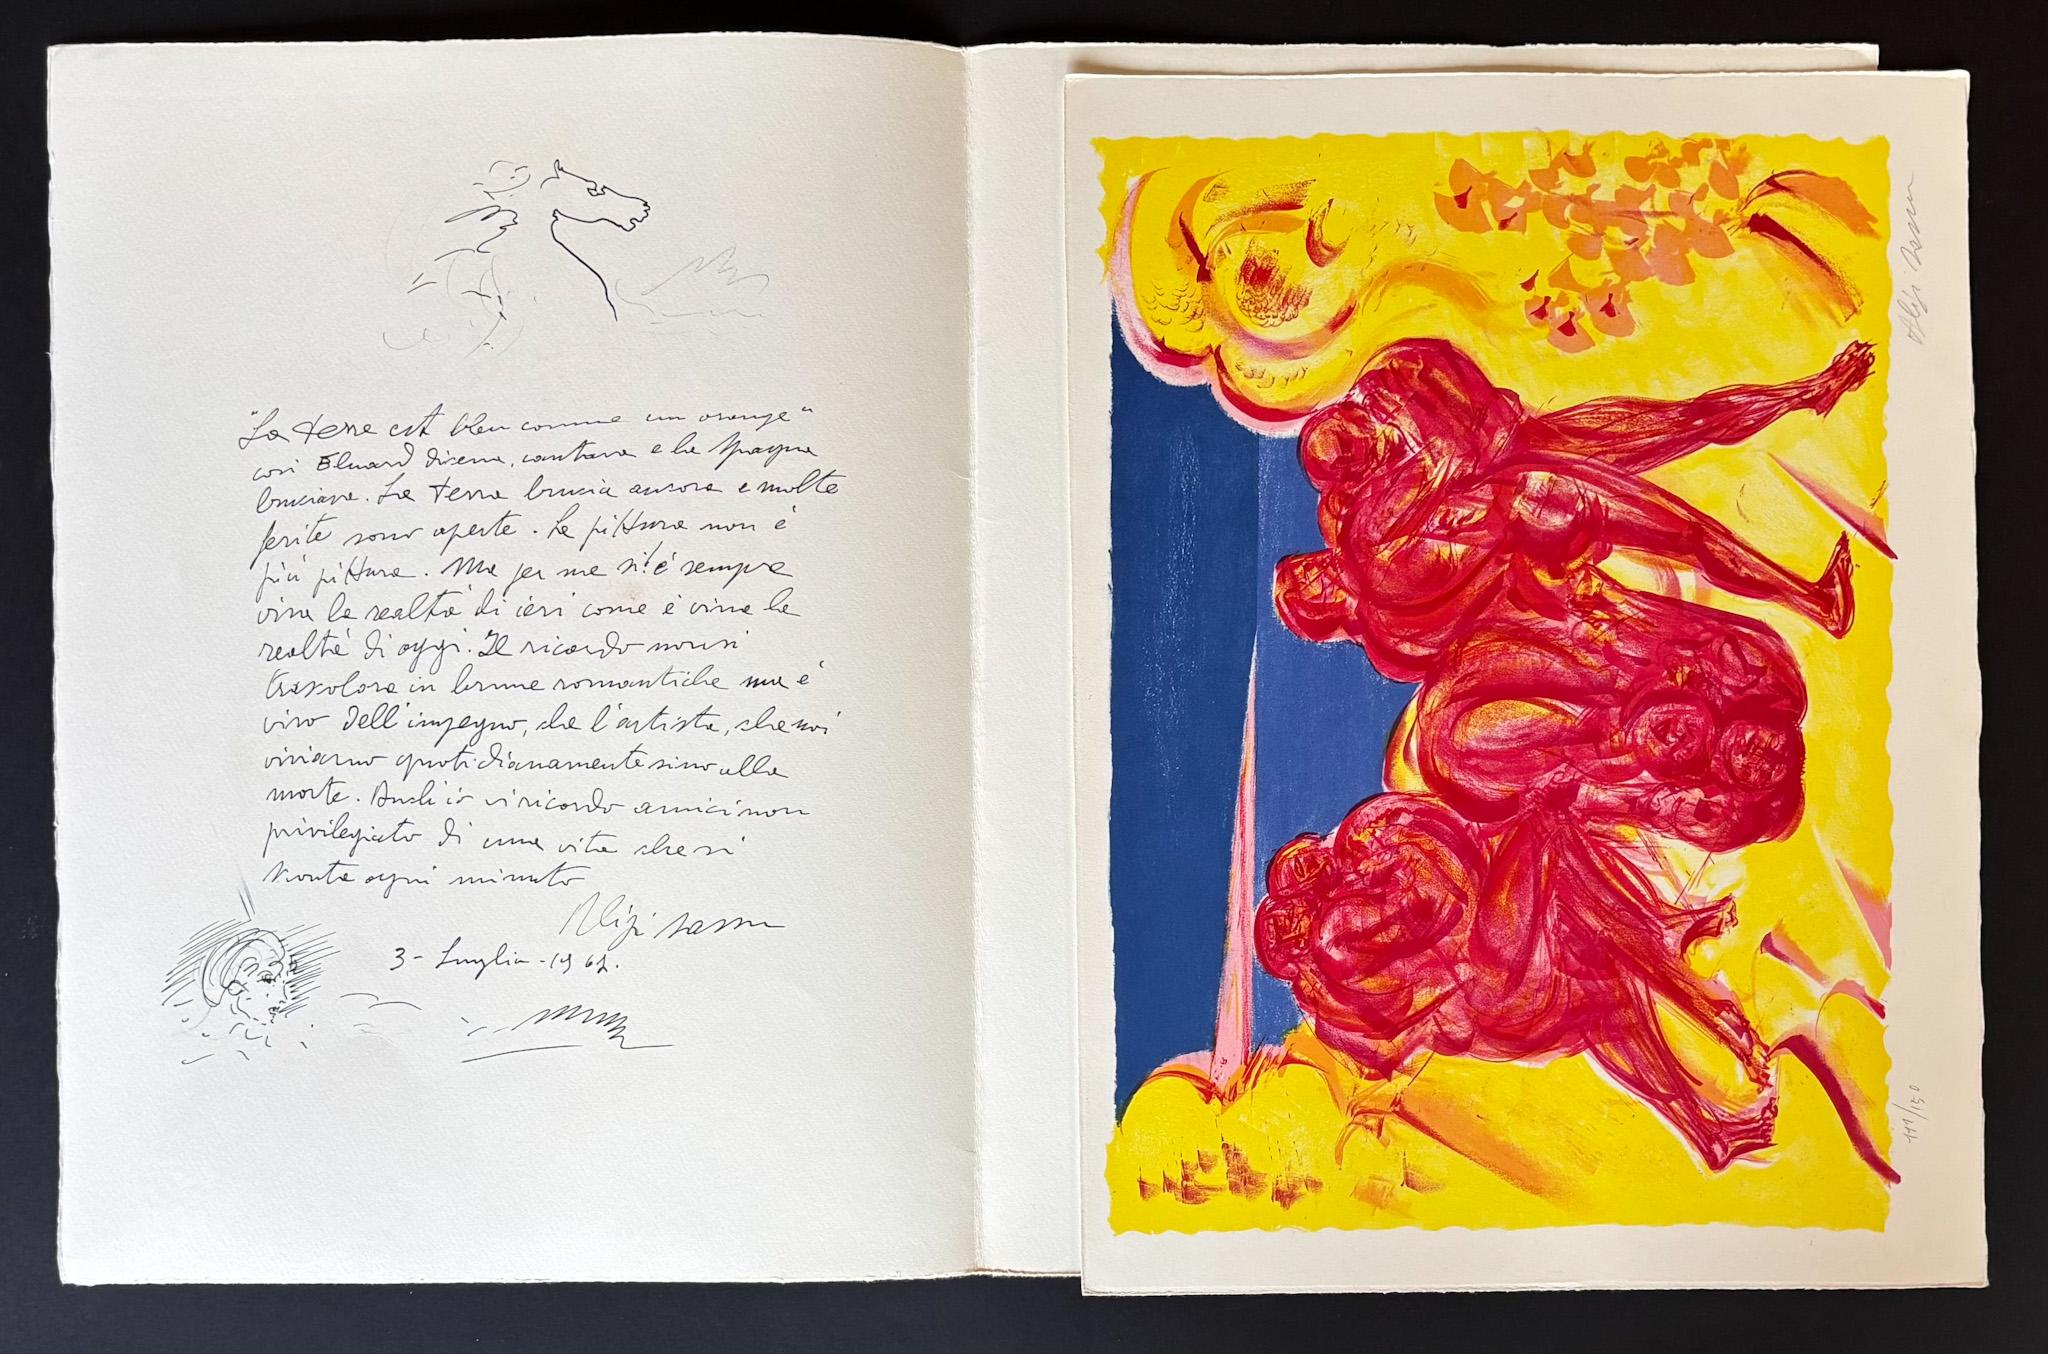 "La terre est bleu comme un orange"
così Eluard diceva, cantava e la Spagna
bruciava. La terra brucia ancora e molte
ferite sono aperte. La pittura non è
più pittura. Ma per me si! é sempre
viva la realtà di ieri come è viva la
realtà di oggi. Il ricordo non si
trascolora in brume romantiche ma è
vivo dell'impegno, che l'artista, che noi
viviamo quotidianamente sino alla
morte. Anch'io vi ricordo amici non
privilegiato di una vita che si
sconta ogni minuto
Aligi Sassu
3 - Luglio - 19
Aligi Sassu
111/150